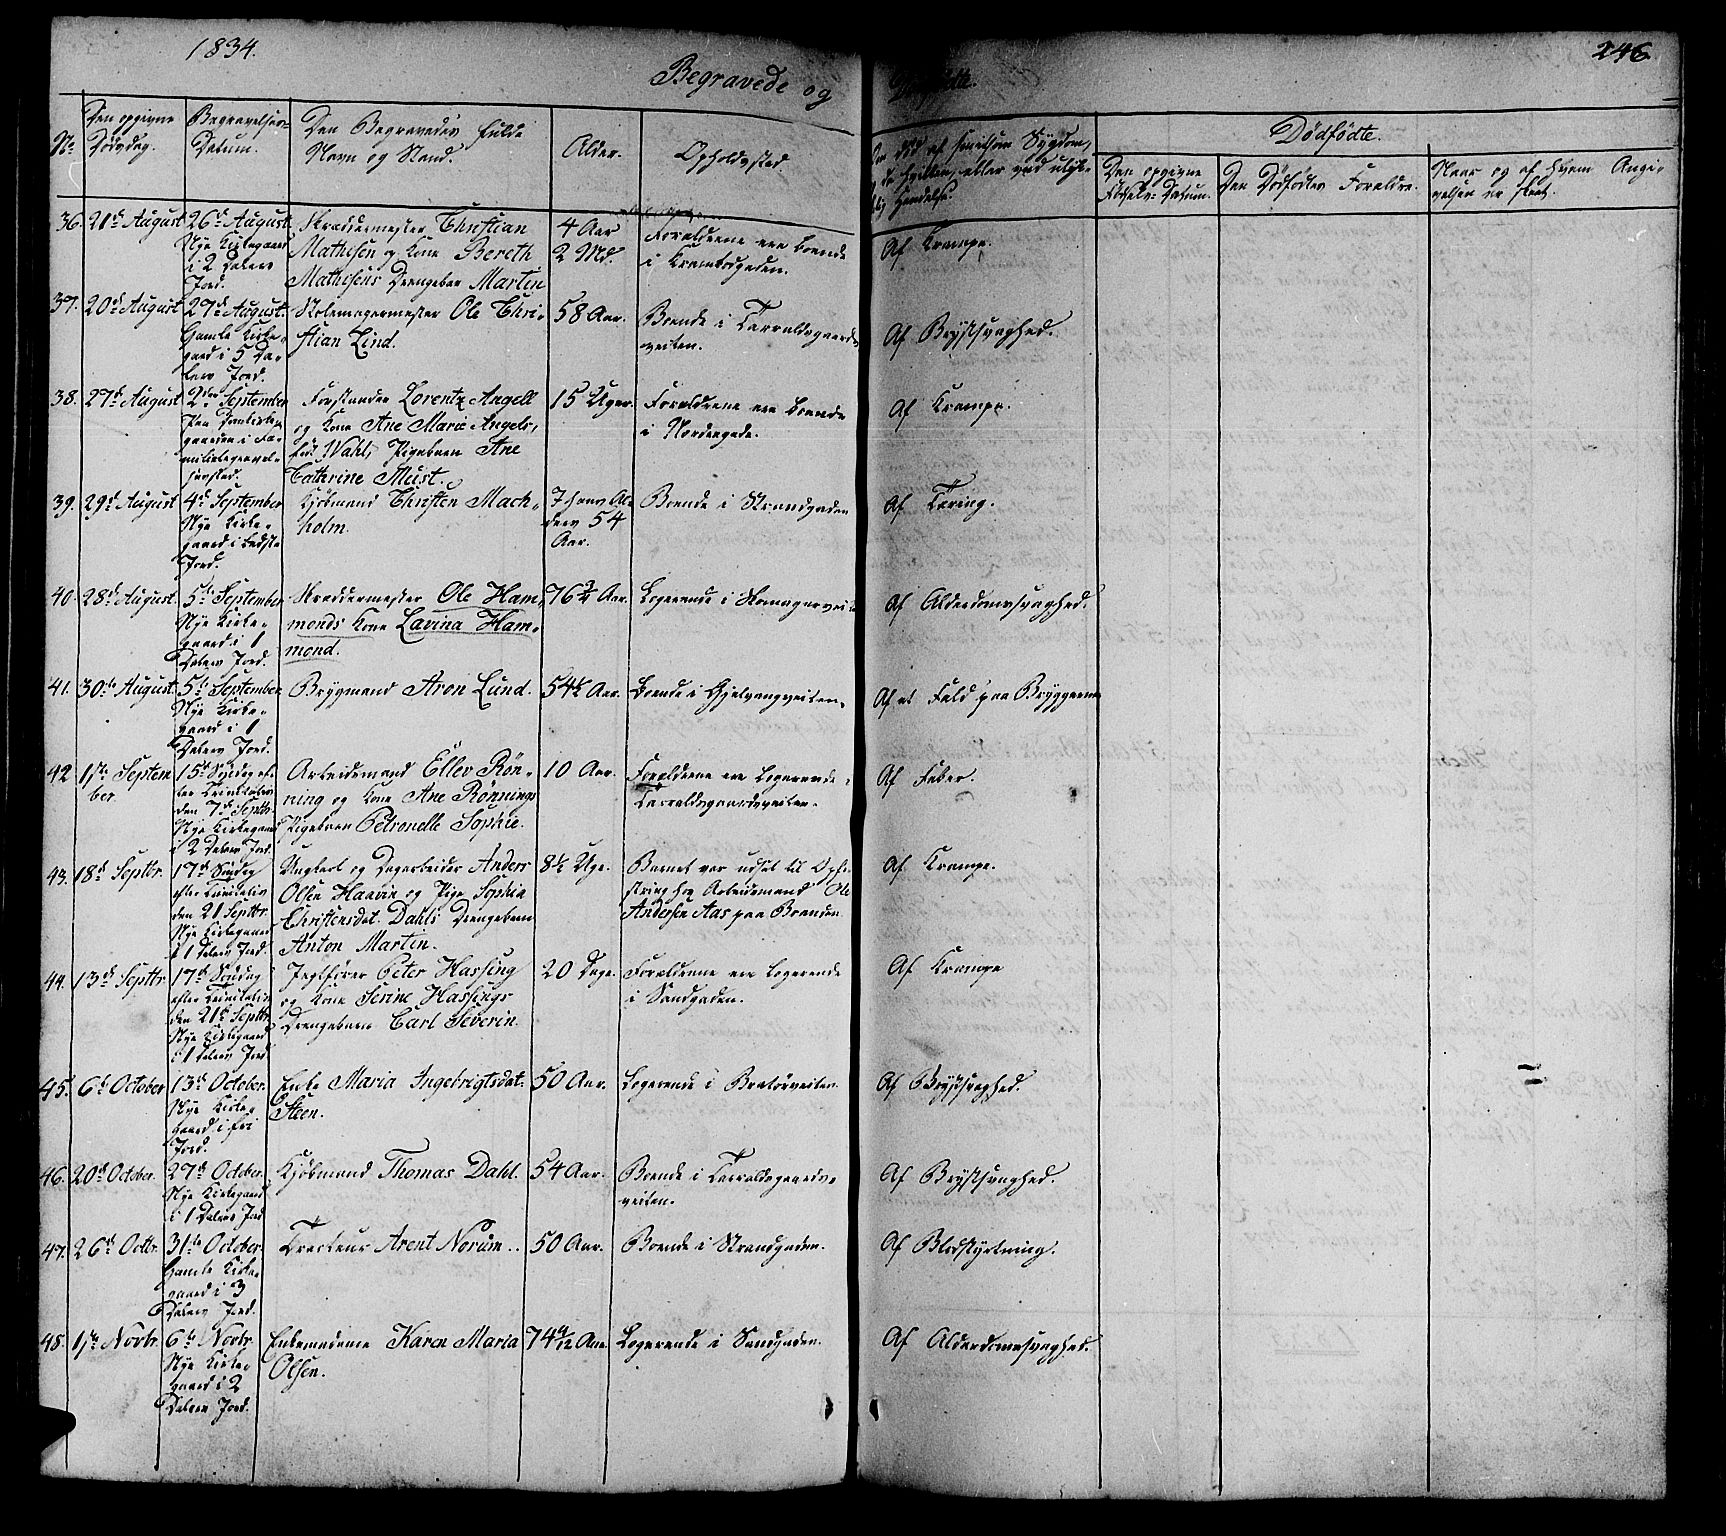 1834.
246
Begravede og
Dødfødte.
No
Den opgivne
Dødsdag.
Begravelses-
Datum.
Den Begravedes fulde
Navn og Stand.
Alder.
Opholdssted.
Dødfødte.
Den opgivne
Fødsels-Datum.
Den Dødfødtes Forældre.
Naar og af Hvem Angi-
velsen er skeet.
36. 21de August
26de August
Nye Kirkegaard
i 2 Dalers
Jord.
Skræddermester Christian
Mathisen og Kone Bereth
Mathisens Drengebarn Martin
4 Aar
2 Md.
Forældrene ere boende
i Krambodgaden.
Af Krampe.
37. 20de August
27de August.
Gamle Kirke-
gaard i 5 Da-
lers Jord.
Stolemagermester Ole Chri-
stian Lind.
58 Aar.
Boende i Tarraldsgaards-
veiten.
Af Brystsvaghed.
38. 27de August
2den September
Paa Domkirke-
gaarden i Fa-
miliebegravel-
sessted.
Forstander Lorentz Angell
og Kone Ane Marie Angels,
fød Wahl, Pigebarn Ane
Cathrine Must.
15 Uger.
Forældrene ere boende
i Nordregade.
Af Krampe.
39. 29de August
4de September
Nye Kirke-
gaard i bedste
Jord.
Kjøbmand Christen Mach-
holm.
54
Aar.
Boende i Strandgaden
Af Tæring.
40. 28de August
5te September
Nye Kirke-
gaard i 1
Dalers Jord.
Skræddermester Ole Ham-
monds Kone Lavina Ham-
mond.
76 3/4 Aar.
Logerende i Skomagerveiten
Af Alderdomssvaghed.
41. 30te August.
5te September
Nye Kirke-
gaard i 1
Dalers Jord.
Brygmand Aron Lund.
54 1/2 Aar.
Boende i Gjelvangveiten.
Af et Fald paa Bryggerne
42 1ste Septem
ber.
15de Søndag ef-
ter Trinitatis
den 7de Septbr.
Nye Kirkegaard
i 2 Dalers Jord.
Arbeidsmand Ellev Røn-
ning og Kone Ane Rønnings
Pigebarn Petronelle Sophie.
10 Aar.
Forældrene ere logerende i
Tarraldsgaardsveiten.
Af Feber.
43. 18de Septbr.
17de Søndag
efter Trinitatis
den 21 Septbr.
Nye Kirkegaard
i 1 Dalers Jord.
Ungkarl og Dagarbeider Anders
Olsen Haavin og Pige Sophia
Christensdat. Dahls Drengebarn
Anton Martin.
8 1/2 Uge.
Barnet var udsat til Opfo-
string hos Arbeidsmand Ole
Andersen Aas paa Branden.
Af Krampe.
44. 13de Septbr.
17de Søndag
efter Trinitatis
den 21de Septbr.
Nye Kirkegaard
i 1 Dalers Jord.
Jegtfører Peter Hassing
og Kone Serine Hassings
Drengebarn Carl Severin.
20 Dage.
Forældrene ere logerende
i Sandgaden.
Af Krampe
45. 6te October
13de October.
Nye Kirke-
gaard i fri
Jord.
Enke Maria Ingebrigtsdat.
Steen.
50 Aar.
Logerende i Bratørveiten.
Af Brystsvaghed.
46. 20de October.
27de October.
Nye Kirkegaard
i 1 Dalers Jord
Kjøbmand Thomas Dahl.
54 Aar.
Boende i Tarraldsgaards-
veiten.
Af Brystsvaghed.
47. 26de Octbr.
31te October.
Gamle Kirke-
gaard i 3
Dalers Jord.
Tracteur Arent Norum..
50 Aar.
Boende i Strandgaden.
Af Blodstyrtning.
48. 1ste Novbr.
6te Novbr.
Nye Kirke-
gaard i 2
Dalers Jord.
Enkemadame Karen Maria
Olsen.
74 4/12 Aar.
Logerende i Sandgaden.
Af Alderdomssvaghed.